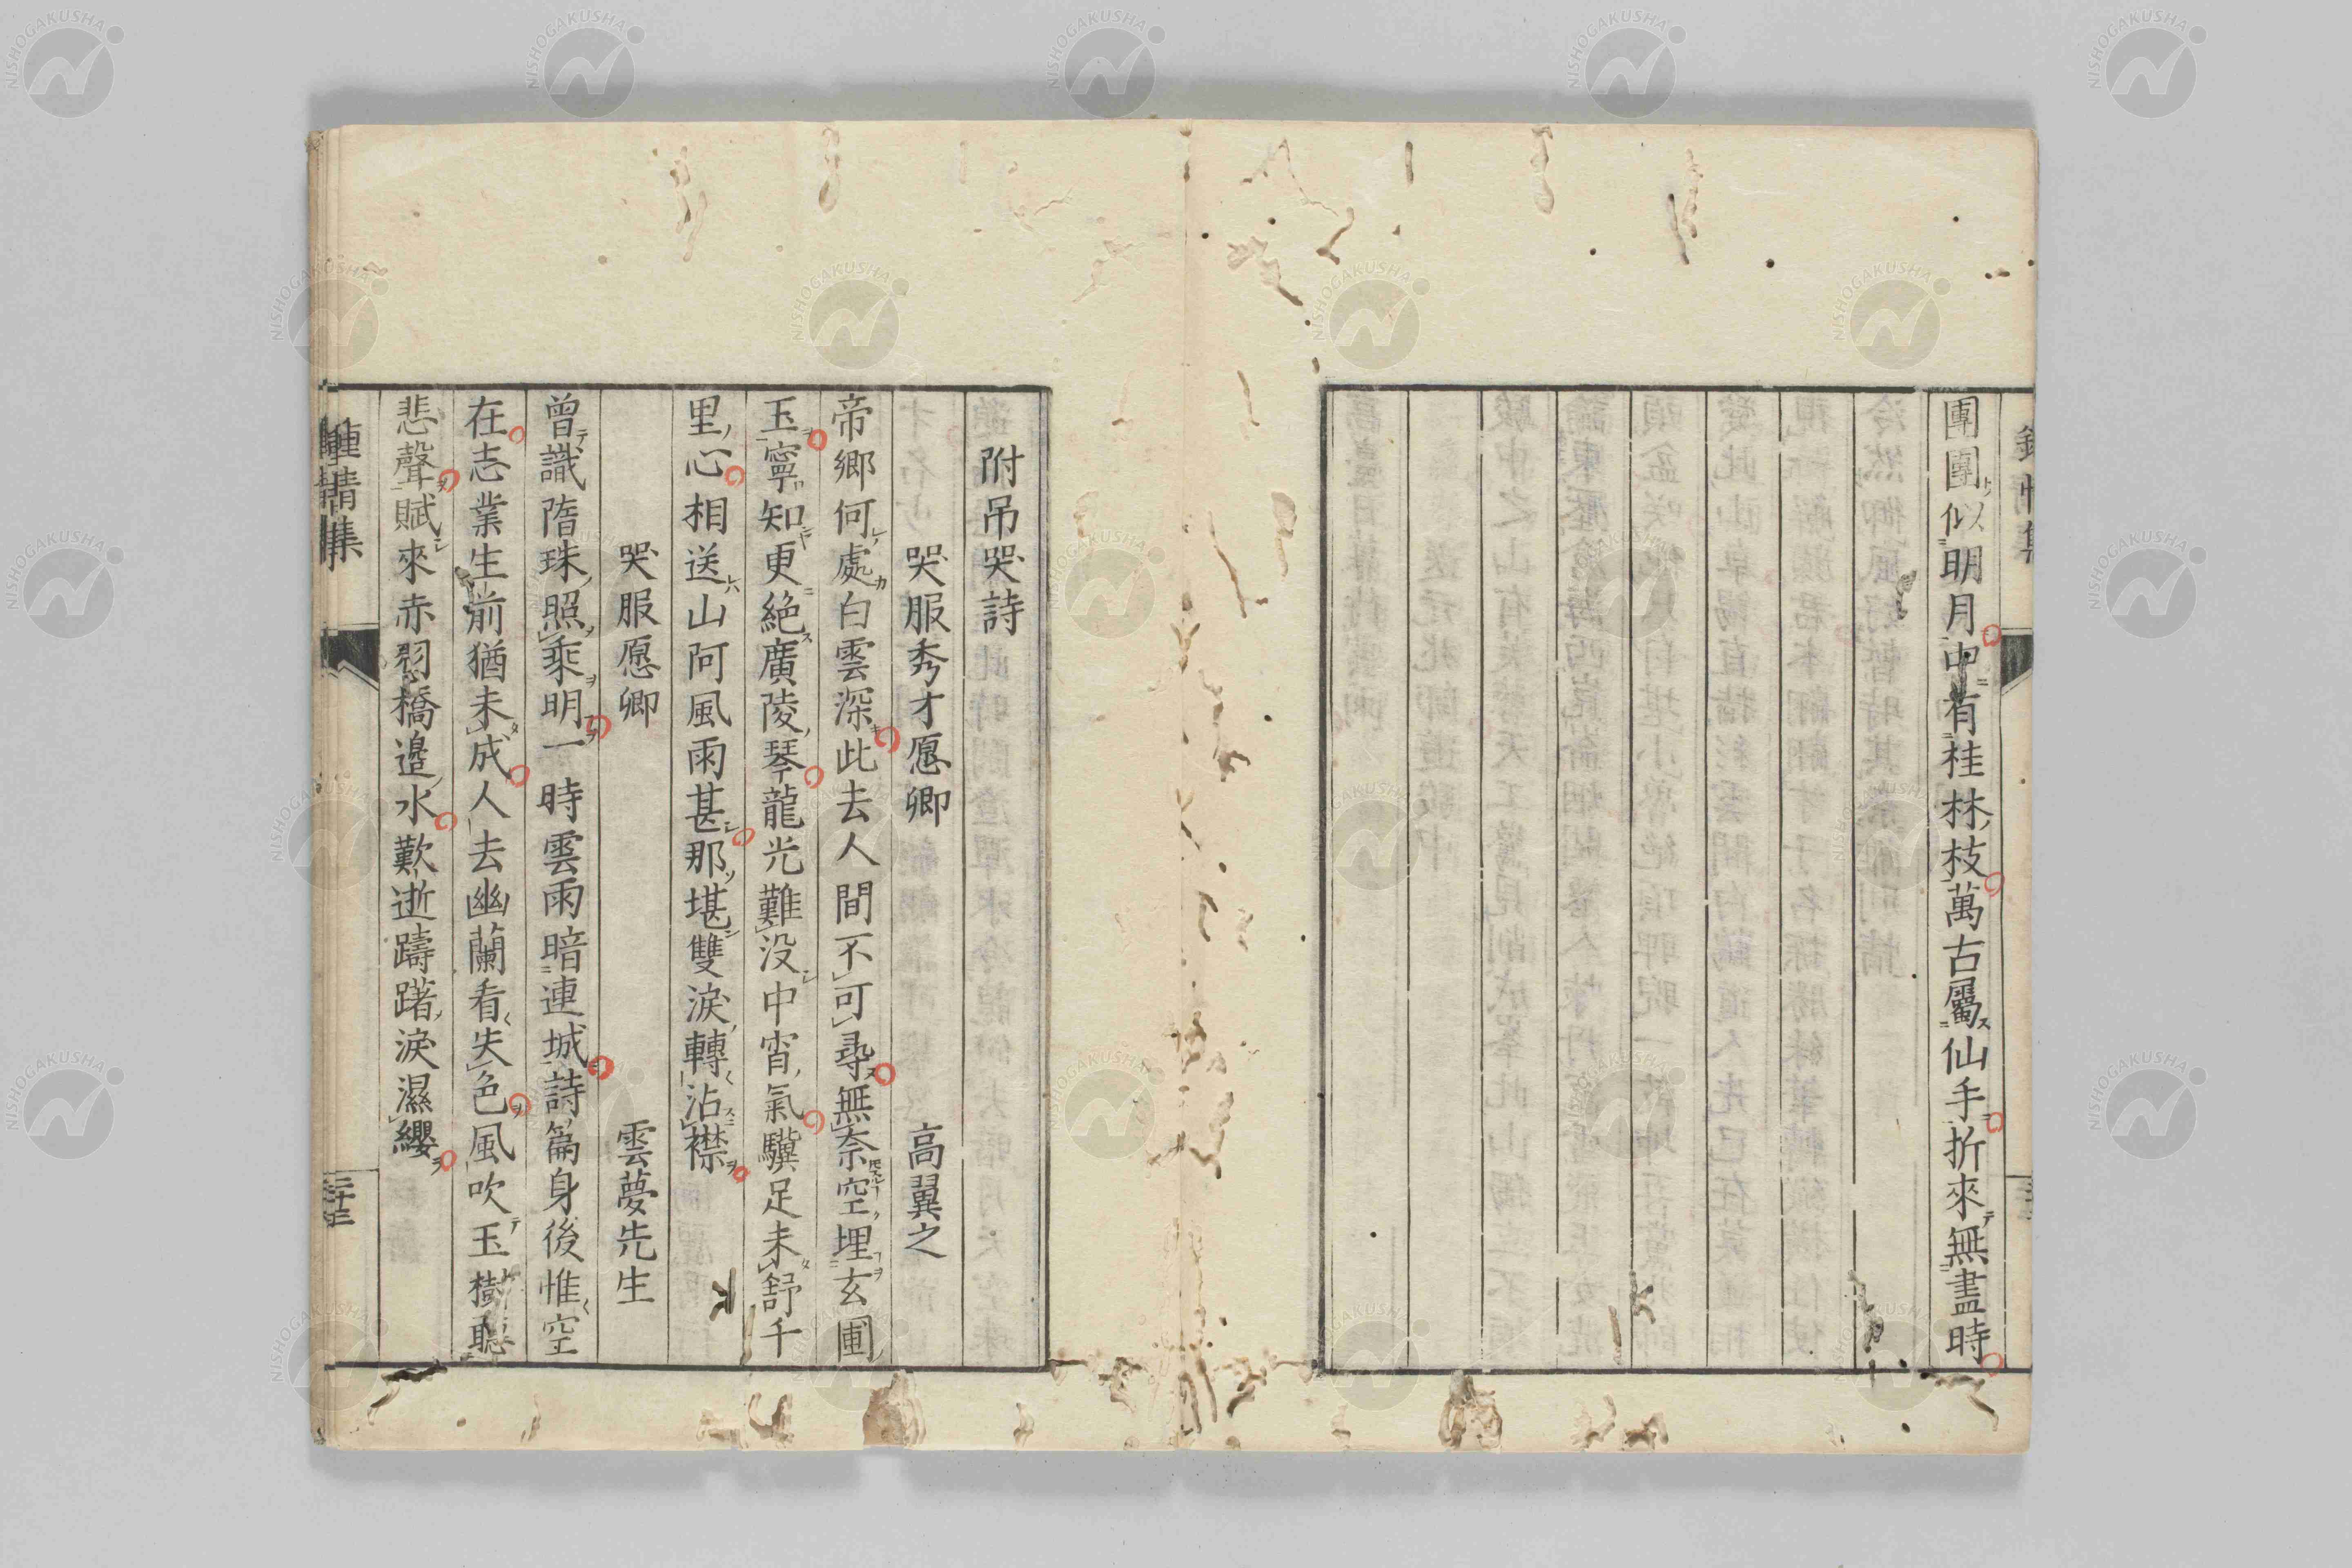 團團似明月中有桂林枝萬古屬仙手折來無盡時
附吊哭詩
哭服秀才愿卿 高翼之
帝鄉何處白雲深此去人間不可尋無奈空埋玄圃
玉寧知更絶廣陵琴龍光難没中宵氣驥足未舒千
里心相送山阿風雨甚那堪雙淚轉沾襟
哭服愿卿 雲夢先生
曾識隋珠照乘明一時雲雨暗連城詩篇身後惟空
在志業生前猶未成人去幽蘭看失色風吹玉樹聽
悲聲賦來赤羽橋邉水歎逝躊躇淚濕纓
NISHOGAKUSHA